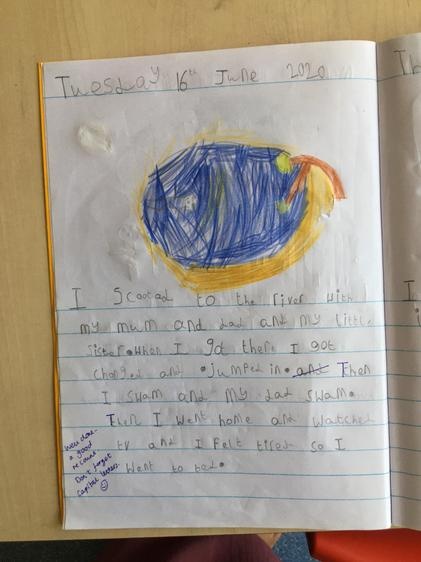 Tuesday 16th June 2020
I Scooted to the river with
my mum and dad and my little
sister. When I got there I got
changed and jumped in. and Then
I swam and my dad swam.
Then I went home and watched
tv and I felt tired so I
went to bed.
Well done.
a good
recount
Don't forget
capital letters.
I